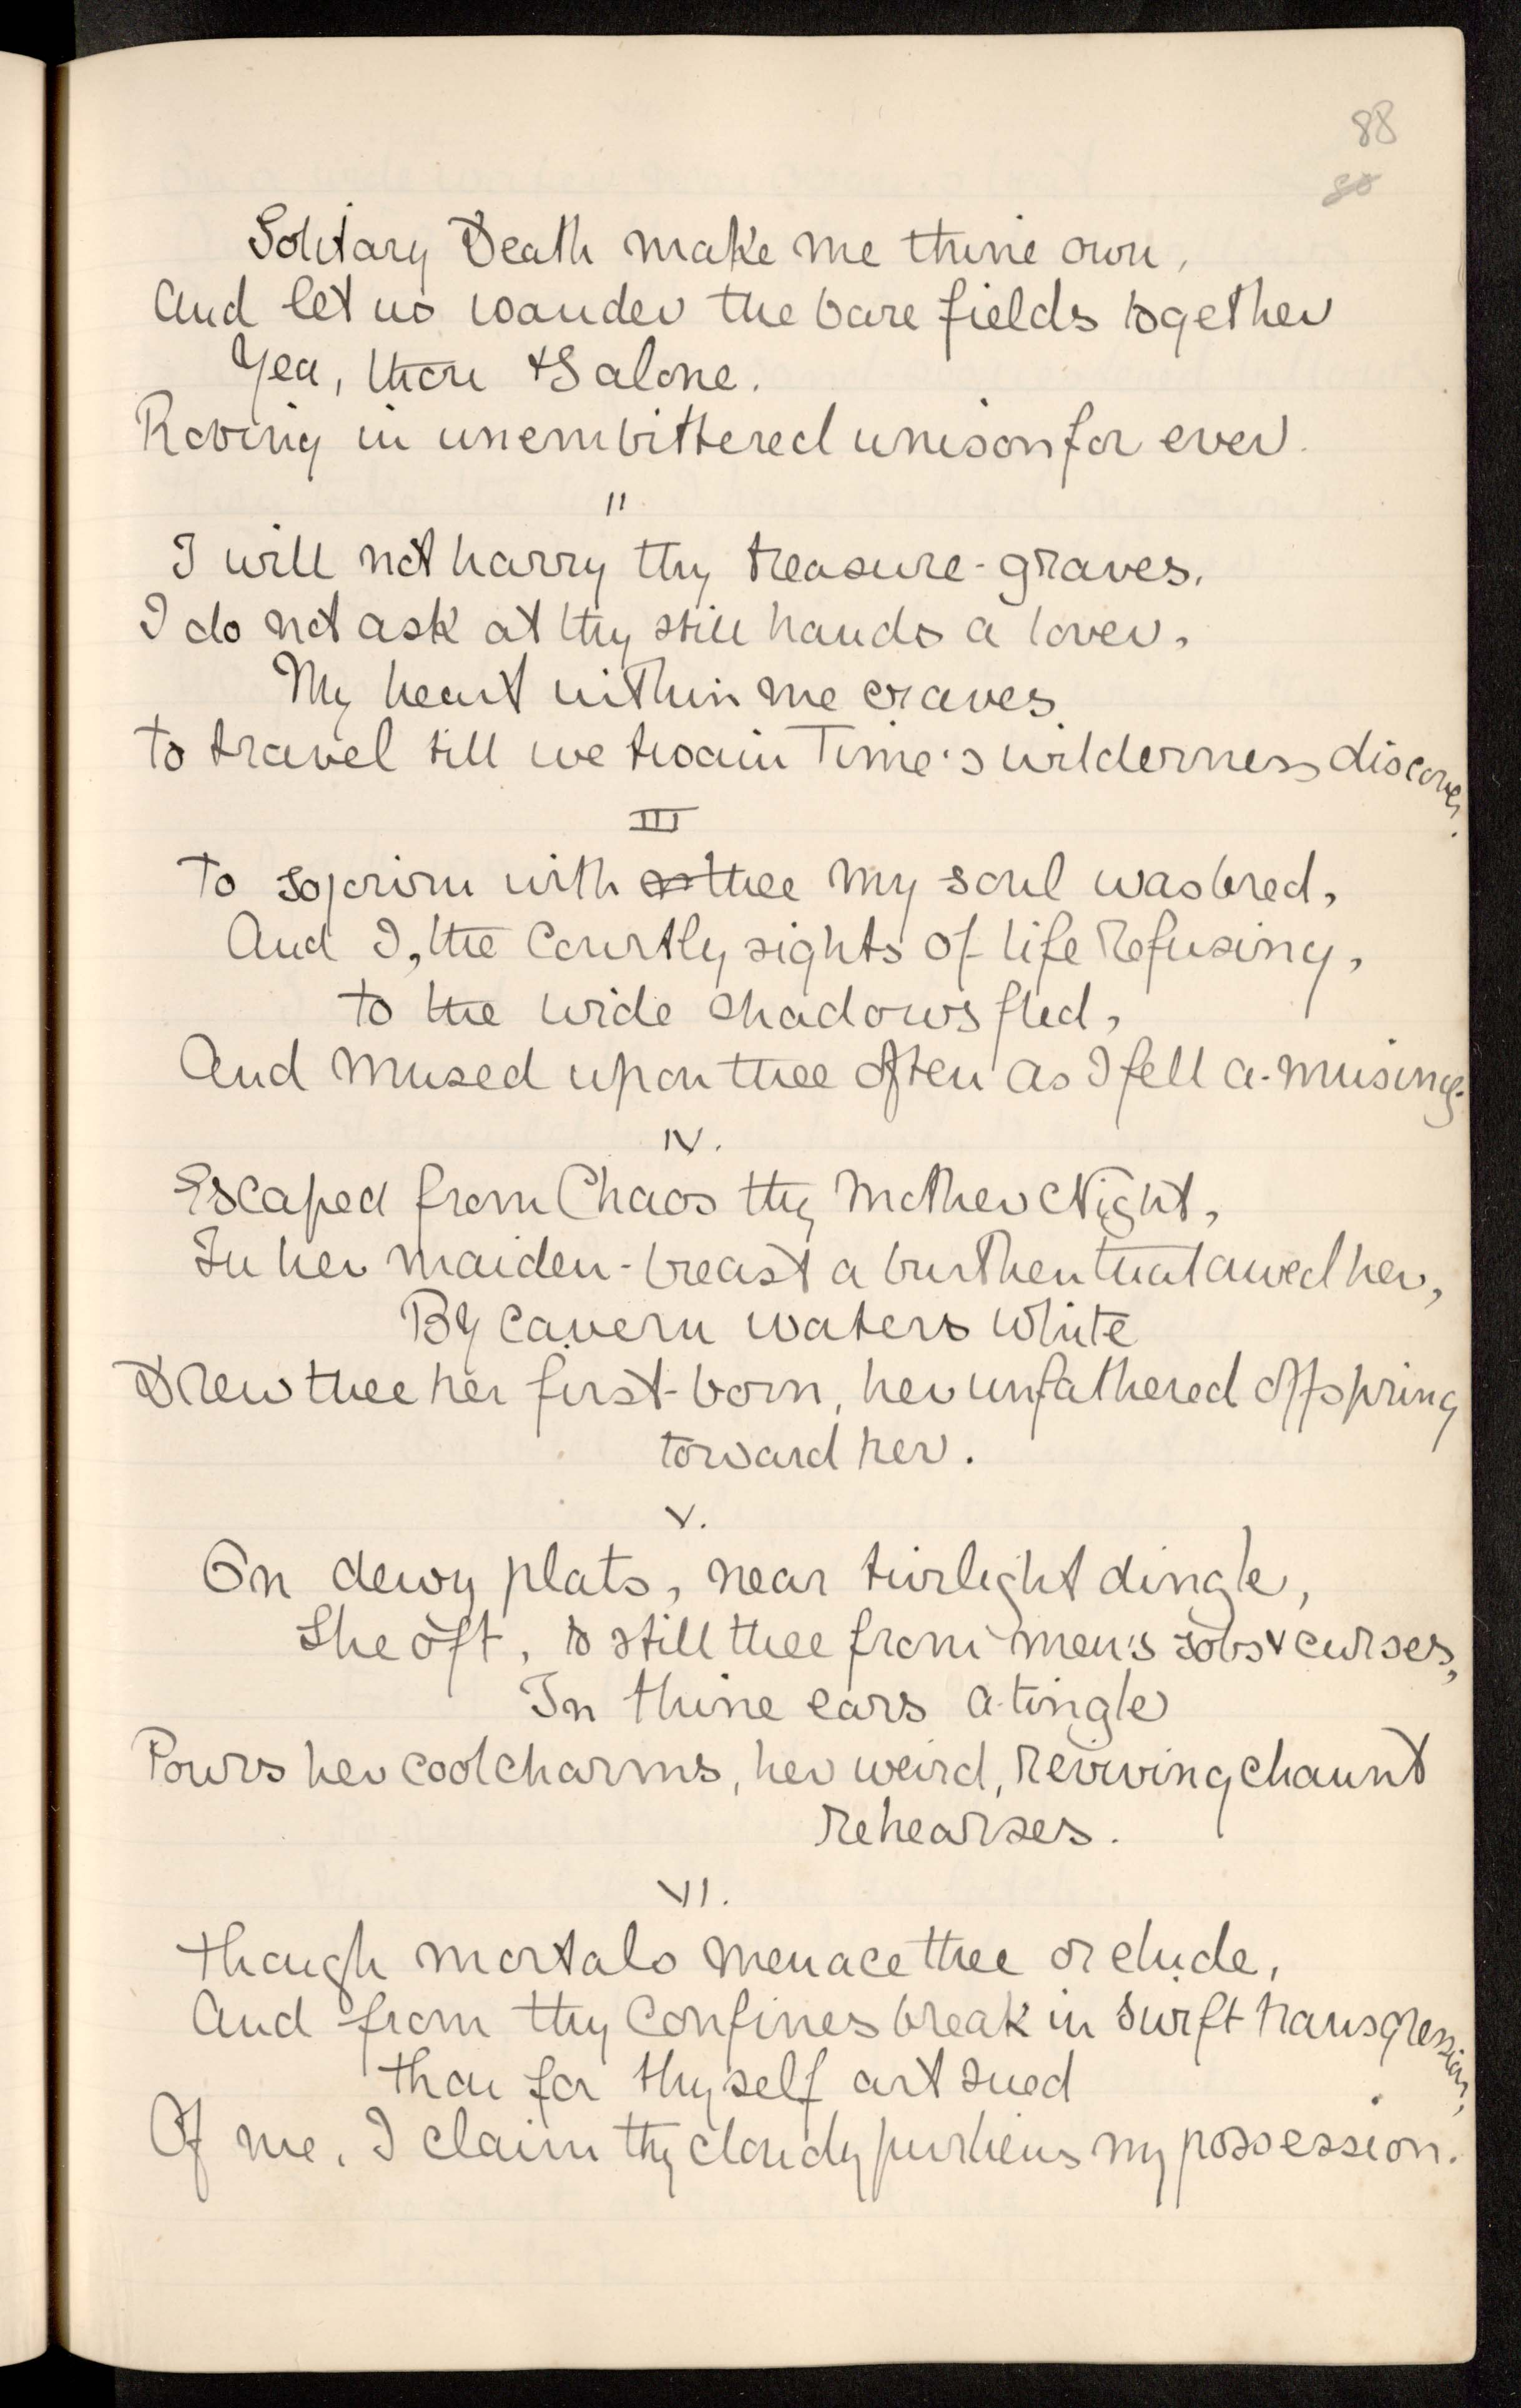 88
80
Solitary Death make me thine own,
And let us wander the bare fields together
Yea, thou & I alone.
Roving in unembittered unison for ever.
II
I will not harry thy treasure-graves,
I do not ask at thy still hands a lover,
My heart within me craves
To travel till we twain Time's wilderness discover.
III
To sojourn with thee my soul was bred,
And I, the courtly sights of life refusing,
To the wide shadows fled,
And mused upon thee often as I fell a-musing.
IV.
Escaped from Chaos thy Mother Night,
In her maiden-breast a burthen that awed her,
By cavern waters white
Drew thee her first-born, her unfathered offspring
toward her.
V.
On dewy plats, near twilight dingle,
She oft, to still thee from men's sobs & curses,
In thine ears a-tingle
Pours her cool charms, her weird, reviving chaunt
rehearses.
VI.
Though mortals menace thee or elude,
And from thy confines break in swift transgression,
Thou for thyself art sued
Of me, I claim thy cloudy purlieus my possession.